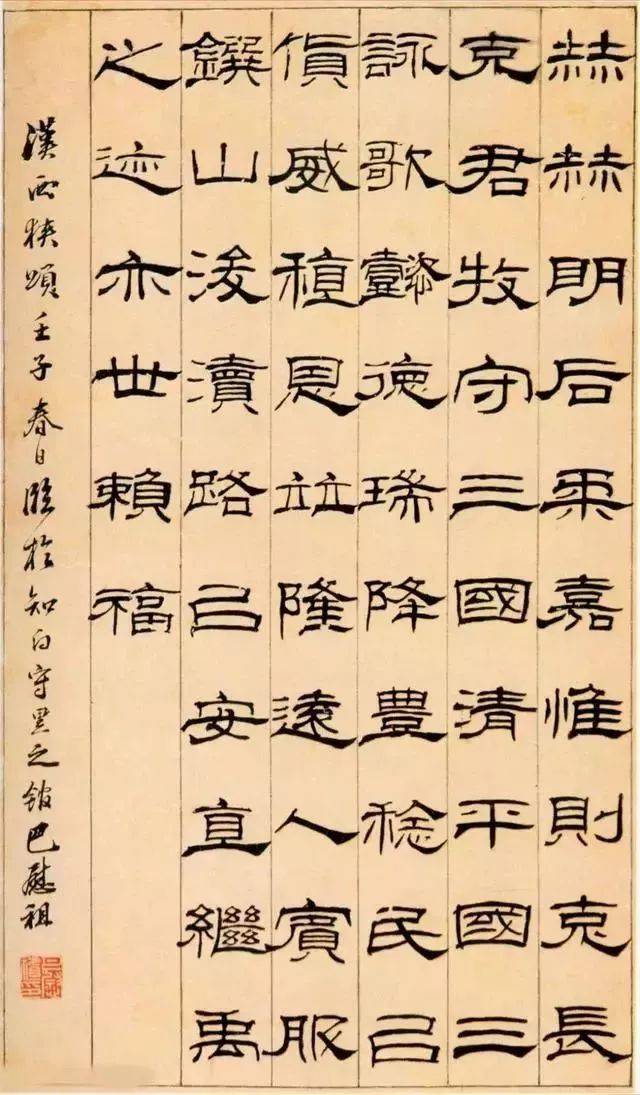 赫赫明后柔嘉惟則克長
克君牧守三國清平國三
詠歌懿德瑞降豊稔民㠯
貨威稙恩竝隆遠人賓服
鐉山浚瀆路㠯安直繼禹
之迹亦世賴福
漢西狹頌壬子春日臨於知白守黑之館巴慰祖